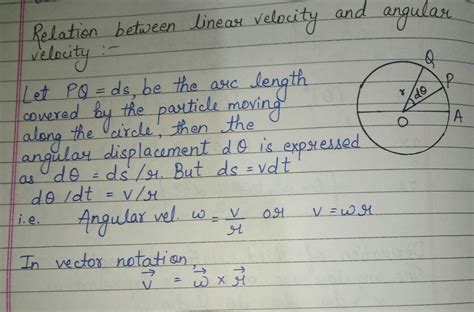 Relation between linear velocity and angular
velocity :-
Let PQ = ds, be the arc length
covered by the particle moving
along the circle, then the
angular displacement dθ is expressed
as dθ = ds/r. But ds = vdt
dθ/dt = v/r
i.e. Angular vel. ω = v/r or v = ωr
In vector notation,
v⃗ = ω⃗ × r⃗
Q
P
r
dθ
A
O